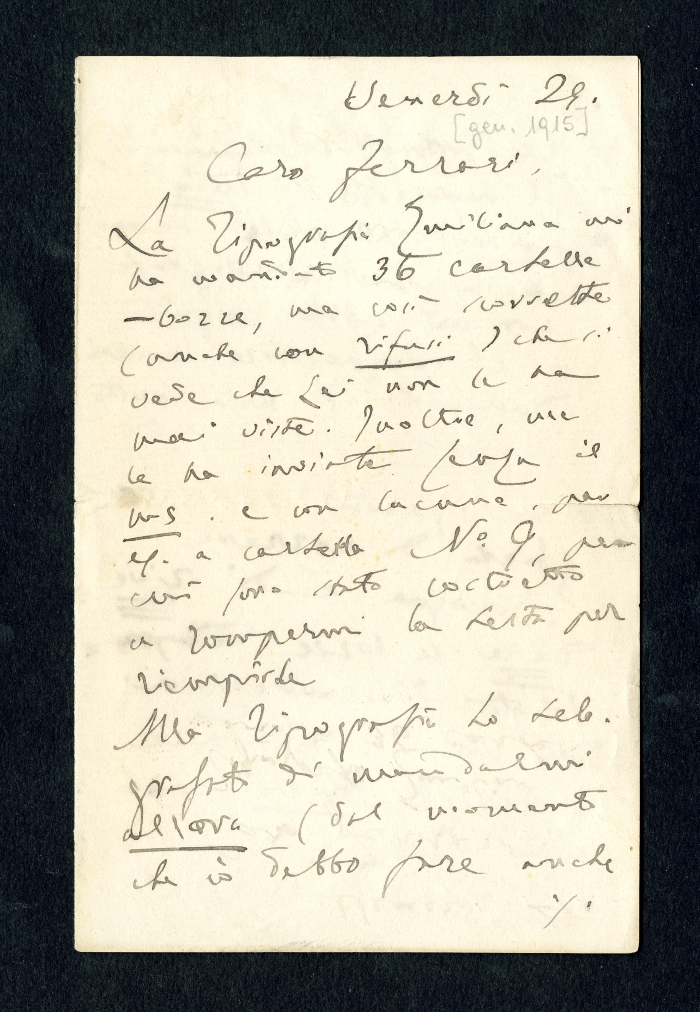 Venerdì 29.
[gen. 1915]
Caro Ferrari,
La Tipografia Emiliana mi
ha mandato 36 cartelle
-bozze, ma così scorrette
(anche con rifusi) che si
vede che Lei non le ha
mai viste. Inoltre, me
le ha inviate senza il
ms. e con lacune, per
es. a cartella No. 9, per
cui sono stato costretto
a rompermi la testa per
riempirle
Alla Tipografia ho tele-
grafato di mandarmi
allora (dal momento
che io debbo fare anche
./.